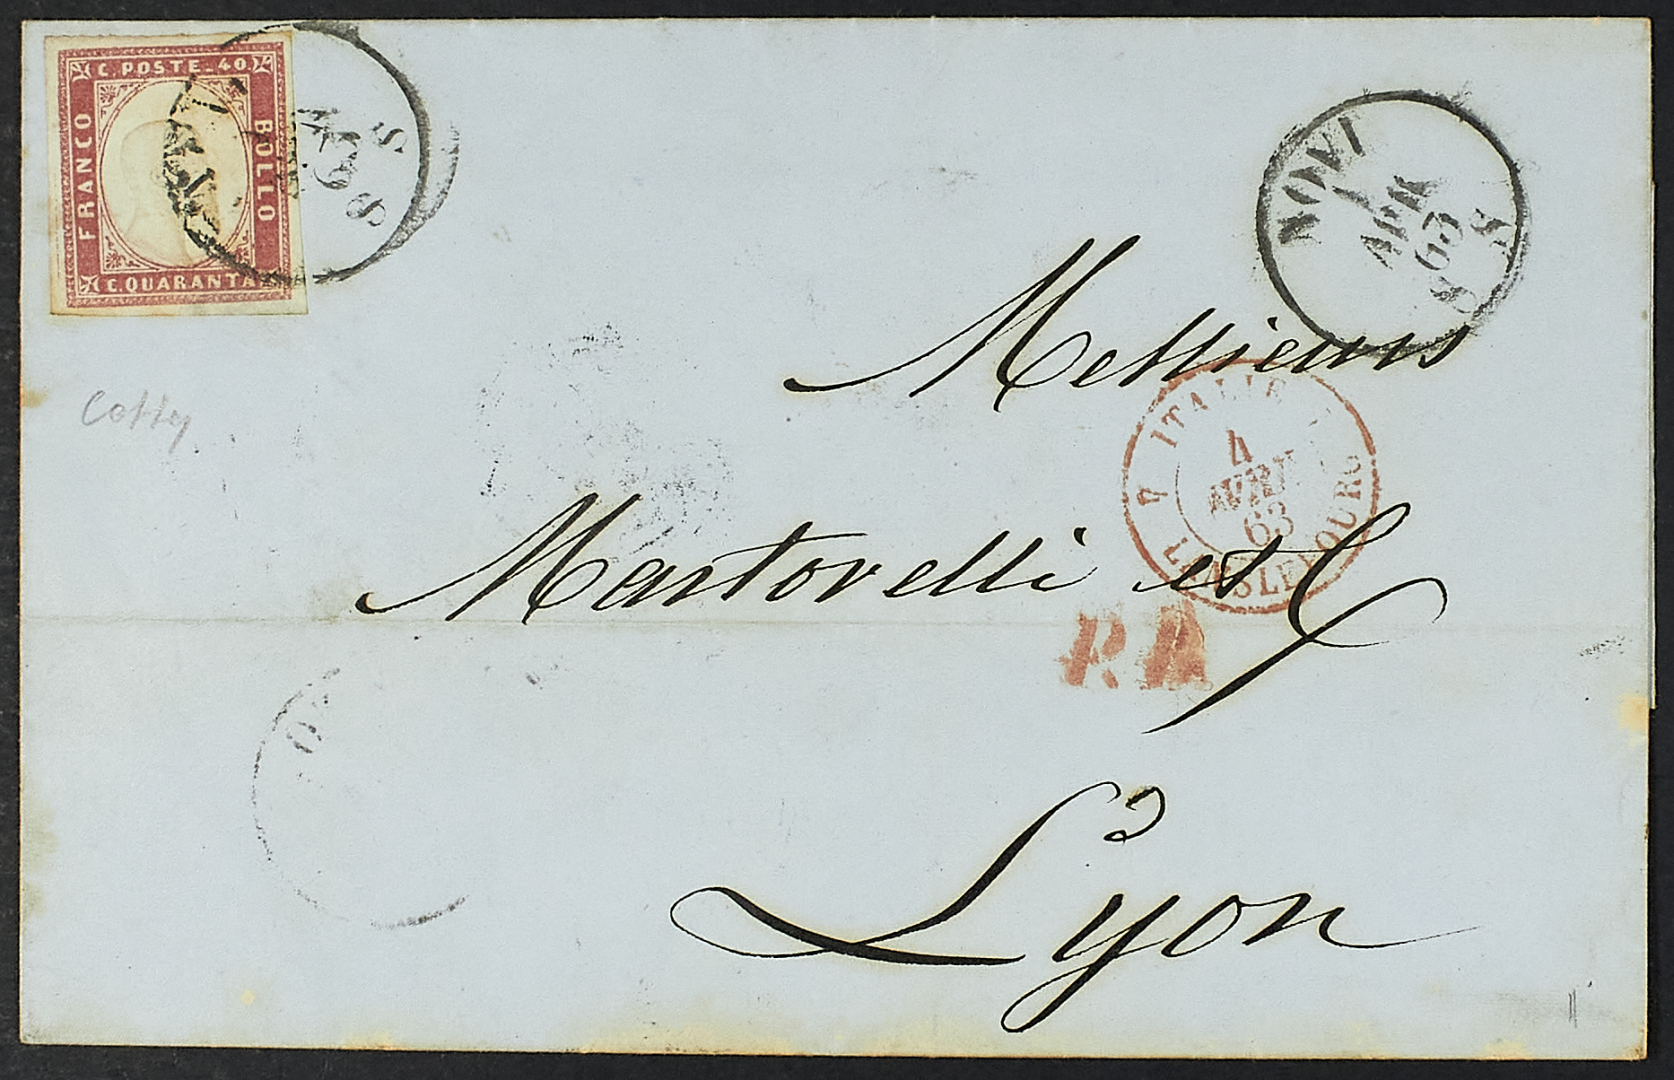 C. POSTE. 40.
FRANCO
BOLLO
C. QUARANTA
NOVI
APR
63
8 S
Messieurs
Cotty
4 ITALIE
4
AVRIL
63
LANSLEBOURG
Martorelli et C
P.D.
Lyon